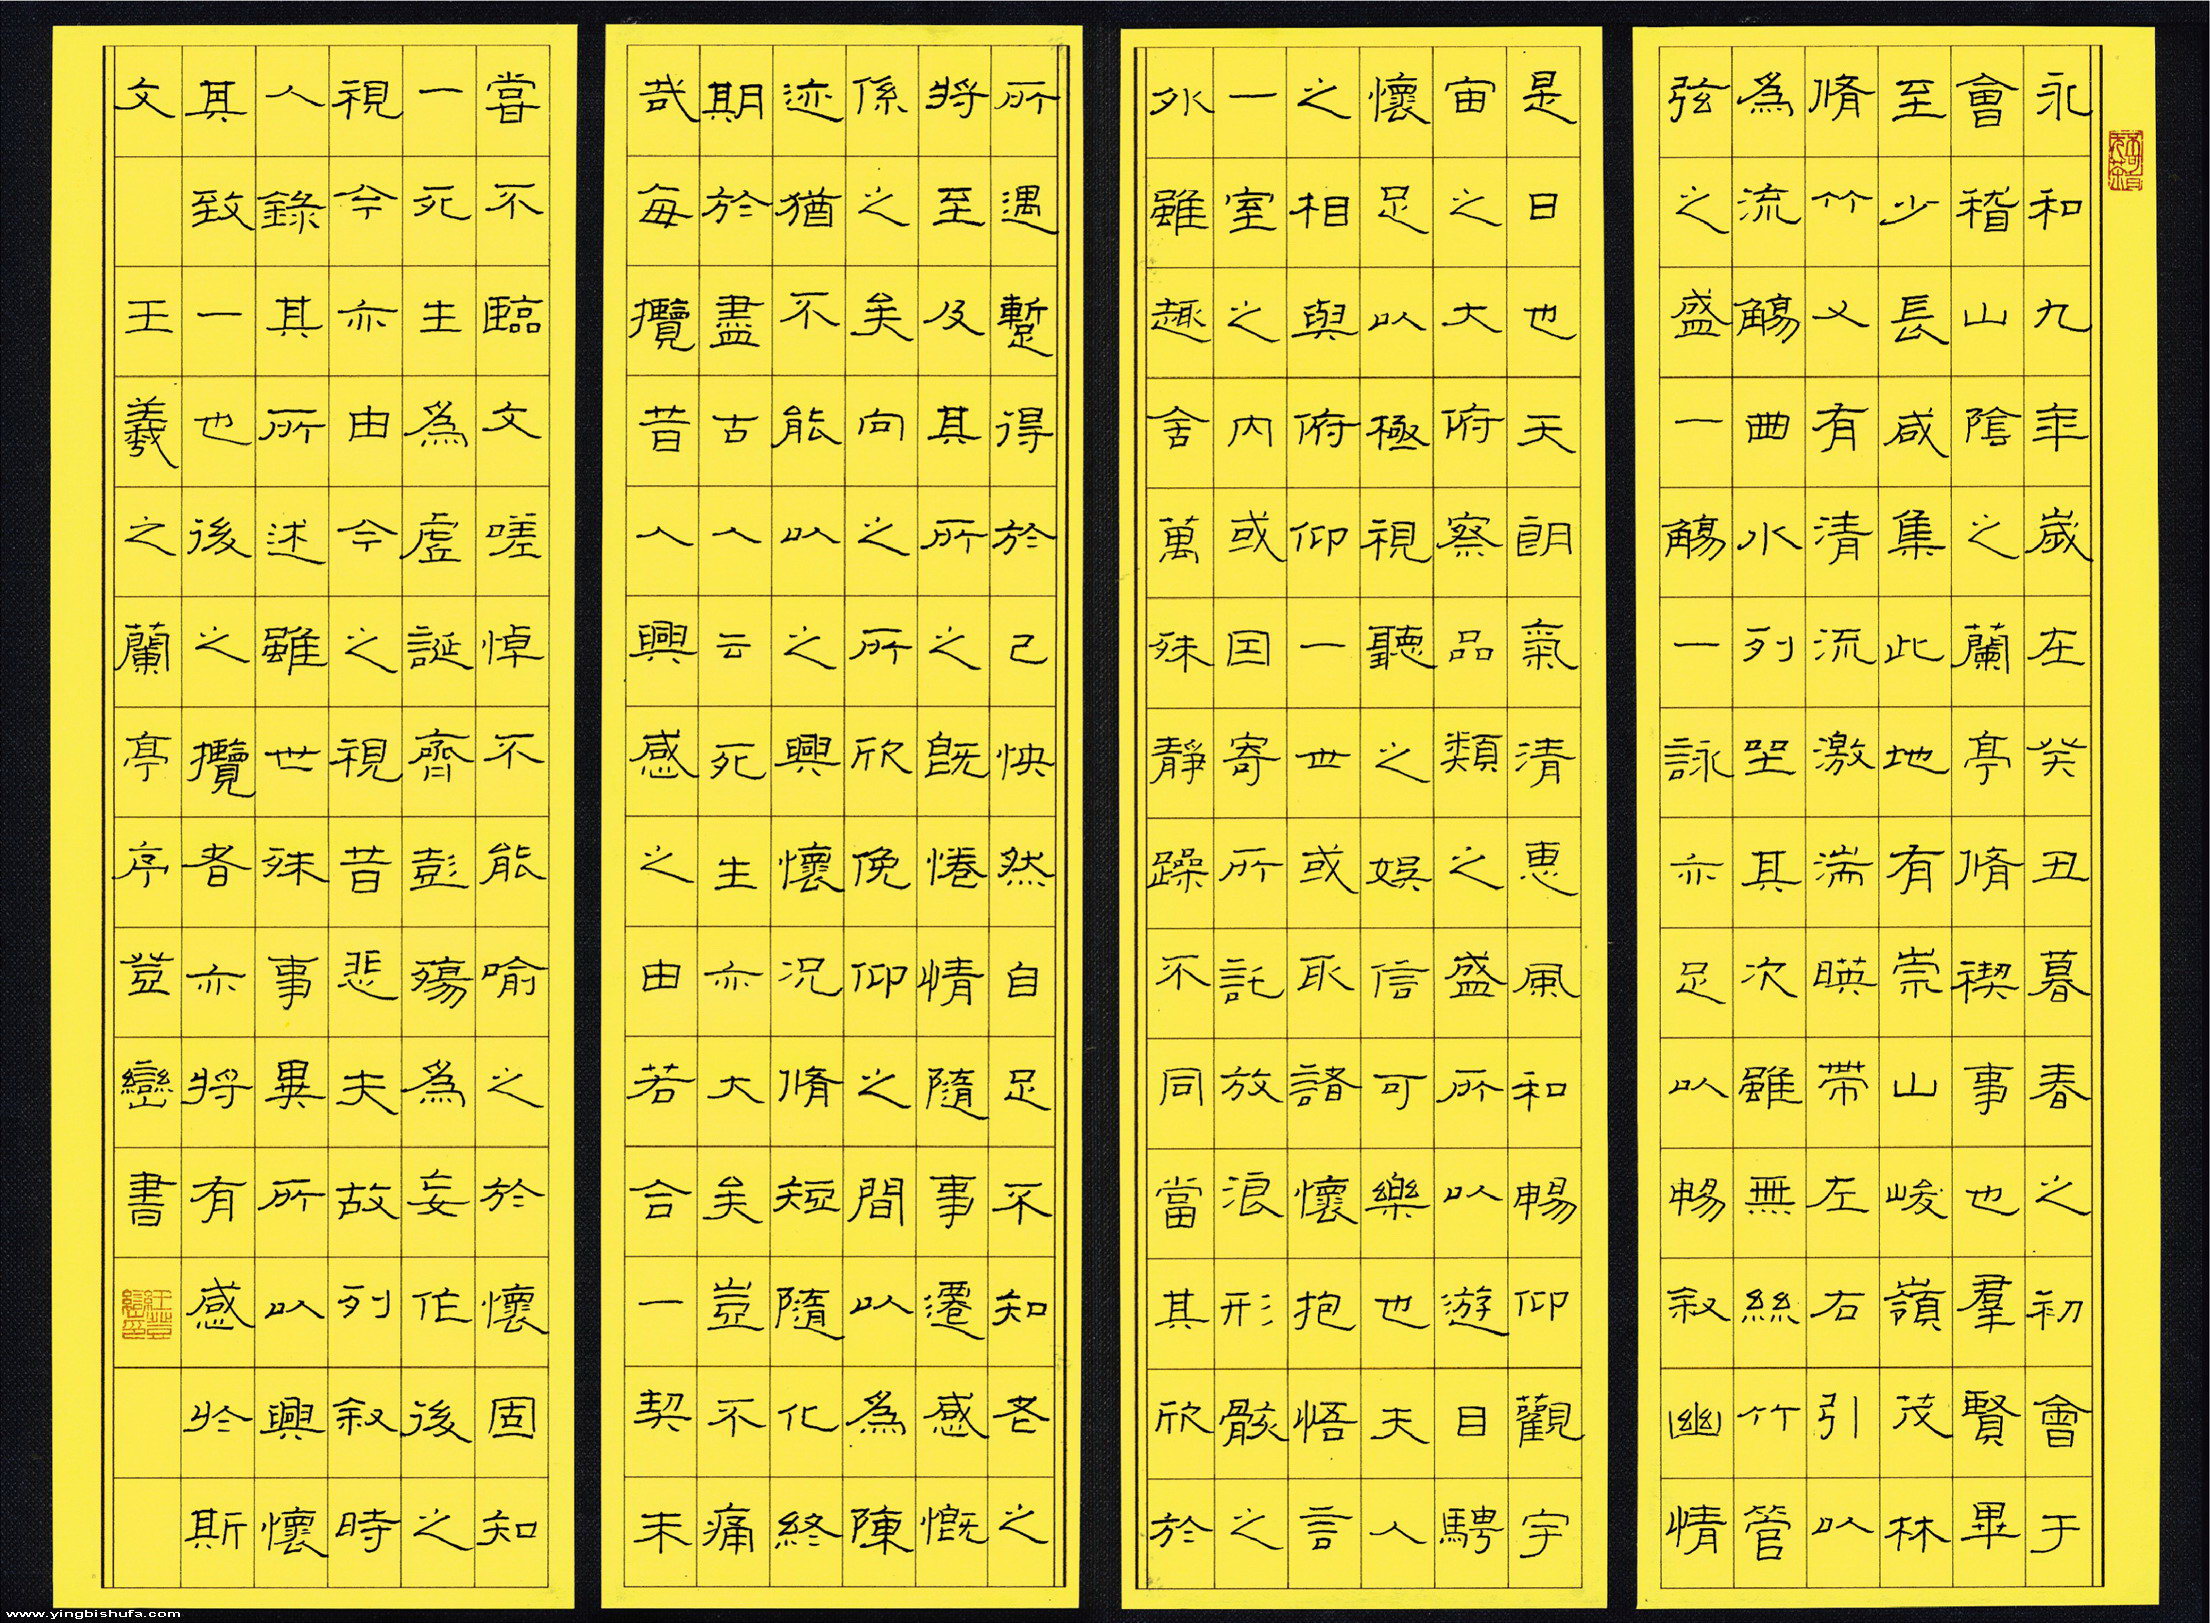 永和九年歲在癸丑暮春之初會于
會稽山陰之蘭亭脩禊事也羣賢畢
至少長咸集此地有崇山峻嶺茂林
脩竹又有清流激湍暎帶左右引以
爲流觴曲水列坐其次雖無絲竹管
弦之盛一觴一詠亦足以暢叙幽情
是日也天朗氣清惠風和暢仰觀宇
宙之大俯察品類之盛所以游目騁
懷足以極視聽之娛信可樂也夫人
之相與俯仰一世或取諸懷抱悟言
一室之内或因寄所託放浪形骸之
外雖趣舍萬殊靜躁不同當其欣於
所遇蹔得於己怏然自足不知老之
將至及其所之既惓情隨事遷感慨
係之矣向之所欣俛仰之間以爲陳
迹猶不能以之興懷况脩短隨化終
期於盡古人云死生亦大矣豈不痛
哉每攬昔人興感之由若合一契未
嘗不臨文嗟悼不能喻之於懷固知
一死生爲虛誕齊彭殤爲妄作後之
視今亦由今之視昔悲夫故列叙時
人錄其所述雖世殊事異所以興懷
其致一也後之攬者亦將有感於斯
文 王羲之蘭亭序荳巒書
www.yingbishufa.com